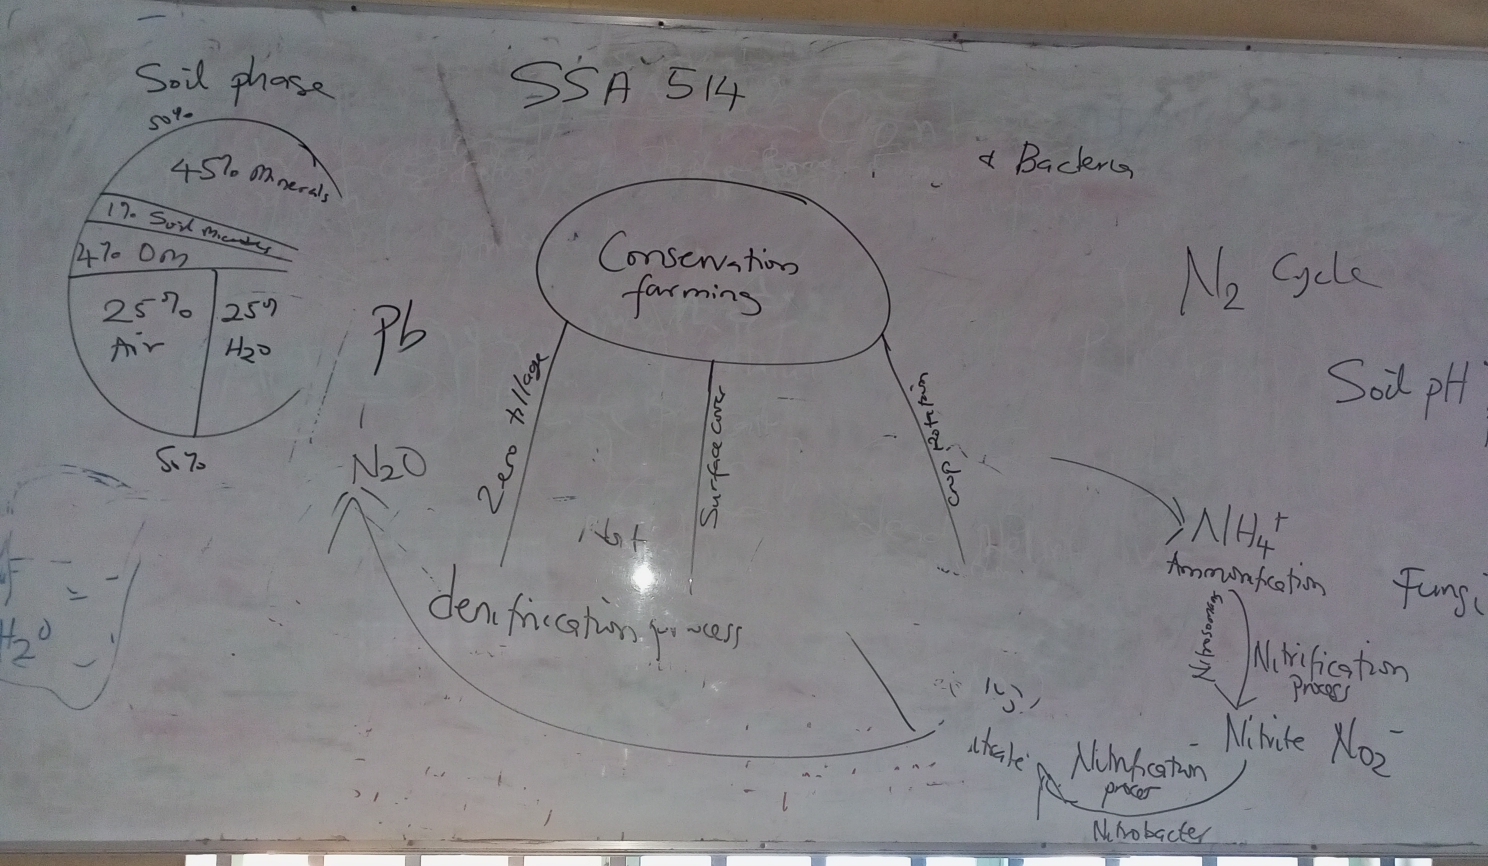 Soil phase
50%
45% minerals
1% Soil microbes
4% Om
25%
Air
25%
H2O
50%
SSA 514
& Bacteria
Conservation
farming
Zero tillage
Surface cover
crop rotation
Pb
N2O
denification process
N2 Cycle
Soil pH
Fungi
NH4+
Ammonification
Nitrosomonas
Nitrification
process
Nitrite NO2-
itrate
Nitrification
proces
Nitrobacter
H2O